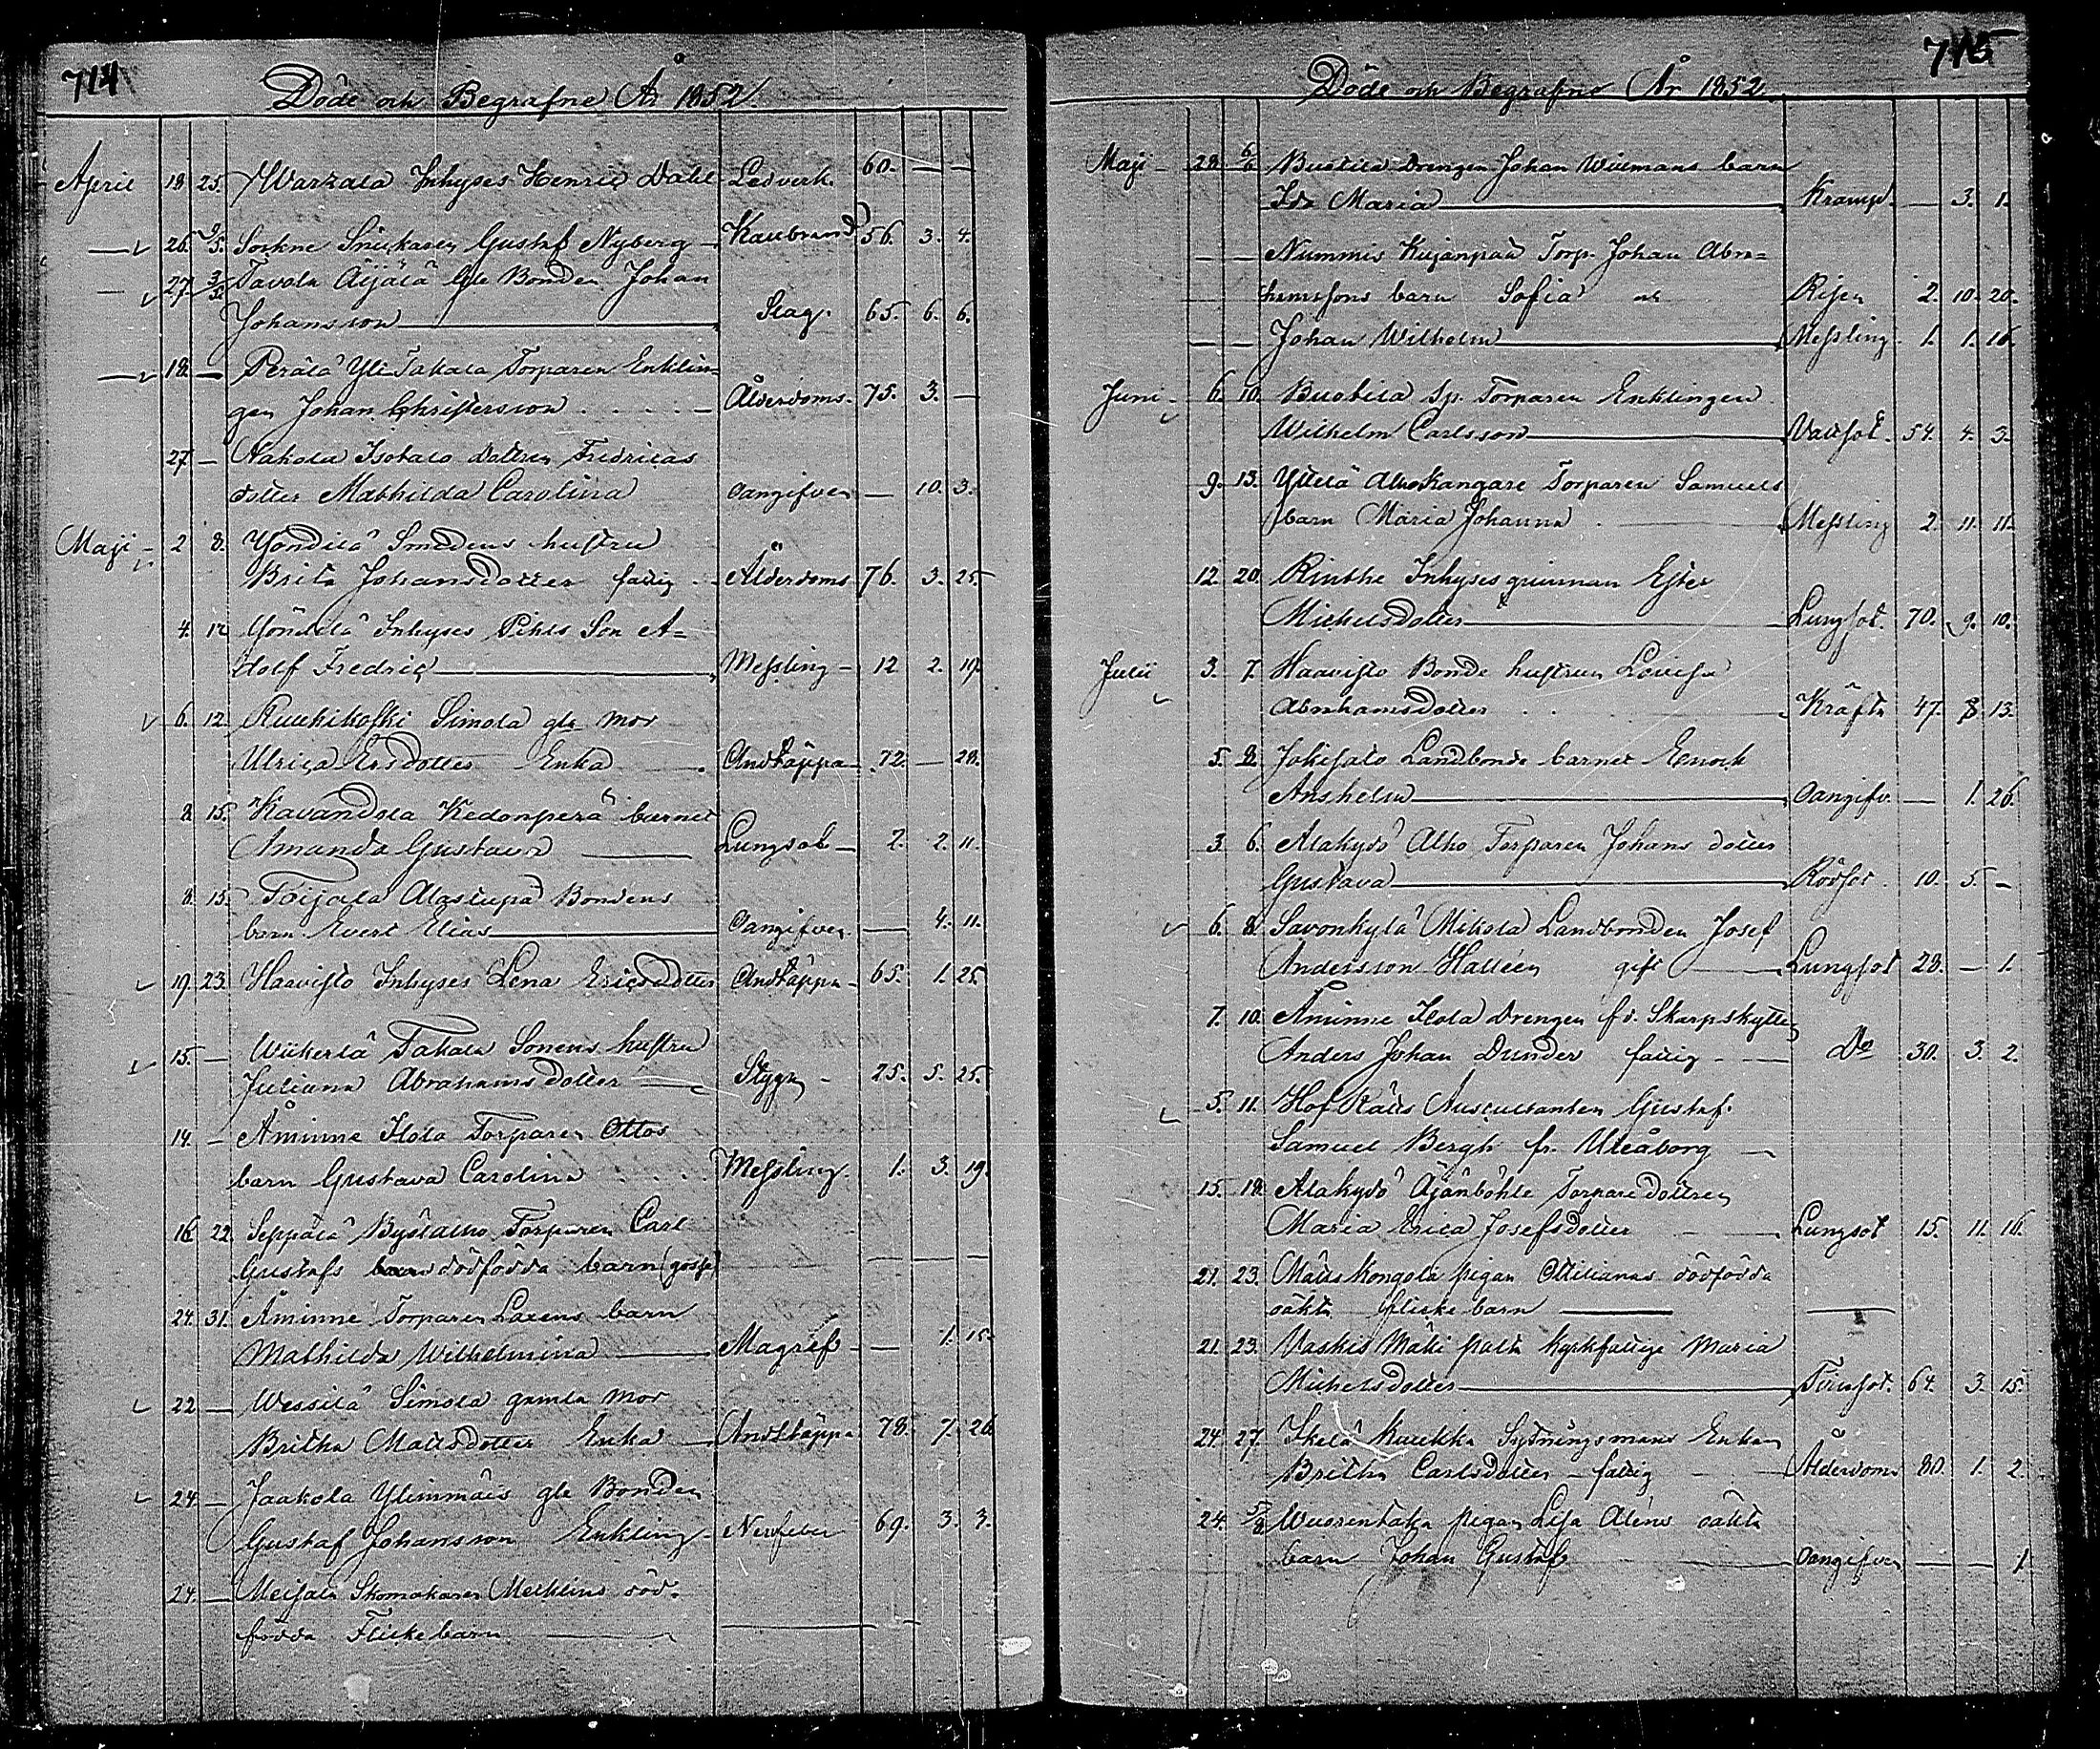 714
Döde och Begrafne År 1852
April 18. 25. Warzala Inhyses Henric Dahl Ledverk. 60. — —
— 26. 9/5. Sorkne Snickaren Gustaf Nyberg — Kallbrand 56. 3. 4.
— 27. Tavola Äijälä gle Bonden Johan
Johansson Slag. 65. 6. 6.
— 18. — Perälä Yli Takala Torparen Enklin-
gen Johan Christersson Ålderdoms. 75. 3. —
27. — Isotalo dottren Fredricas
dotter Mathilda Carolina oangifven — 10. 3.
Maji — 2 8. Yöndilä Smedens hustru
Brita Johansdotter fattig Ålderdoms 76. 3. 25.
4. 12 Yöndilä Inhyses Pihls Son A-
dolf Fredric Messling — 12 2. 19.
6. 12. Kuuhikoski Simola gla mor
Ulrica Ersdotter Enka Andtäppa 72. — 28.
8. 15. Kavandola Kedonperä barnet
Amanda Gustava Lungsot — 2. 2. 11.
8. 15. Toijala Alastupa Bondens
barn Evert Elias Oangifven. — 4. 11.
19. 23. Haavisto Inhyses Lena Ericsdotter Andtäppa — 65. 1. 25.
15. — Takala Sonens hustru
Juliana Abrahamsdotter Stygn — 25. 5. 25.
14. — Åminne Ilola Torparen Ottos
barn Gustava Carolina Messling. 1. 3. 19.
16. 22. Seppälä Torparen Carl
Gustafs dödfödda barn (gosse) — — —
24. 31. Åminne Torparen Laxens barn
Mathilda Wilhelmina Magref — — 1. 15.
22 — Wessilä Simola gamla mor
Britha Mattsdotter Enka Andtäppa 78. 7. 26.
24 — Jaakola Ylimmäis gle Bonden
Gustaf Johansson Enkling Nervfeber 69. 3. 3.
24. — Meisala Skomakaren Mellins död-
födda Flickebarn
715
Döde och Begrafne År 1852.
Maji — 28. 6/6 Buotila Drengen Johan Willmans barn
Ida Maria Kramp. — 3. 1.
— — Nummis Kujanpää Torp. Johan Abra-
hamssons barn Sofia och Risen 2. 10. 20.
— — Johan Wilhelm Messling 1. 1. 16.
Juni — 6. 10. Buotila Sp. Torparen Enklingen
Wilhelm Carlsson Vattsot. 54. 4. 3.
9. 13. Yttilä Alhokangare Torparen Samuels
barn Maria Johanna Messling 2. 11. 11.
12. 20. Rinthe Inhyses qvinnan Ester
Michelsdotter Lungsot. 70. 9. 10.
Julii 3. 7. Haavisto Bonde hustrun Lovisa
Abrahamsdotter Kräfta 47. 8. 13.
5. 8. Jokisalo Landbonde barnet Enoch
Anshelm Oangifv. — 1. 26.
3. 6. Alakydö Alho Torparen Johans dotter
Gustava Rödsot. 10. 5. —
6. 8. Savonkylä Mikola Landbonden Josef
Andersson Halléen gift Lungsot 28. — 1.
7. 10. Åminne Ilola Drengen fd. Skarpskytten
Anders Johan Dunder fattig Do 30. 3. 2.
5. 11. HofRätts Auscultanten Gustaf
Samuel Bergh fr. Uleåborg —
15. 18. Alakydö Äjänböhle Torparedottren
Maria Erica Josefsdotter Lungsot 15. 11. 16.
21. 23. Mälls Kongola pigan Ottilianas dödfödda
oäkta flicke barn
21. 23. Vaskis Mäki kyrkfattige Maria
Michelsdotter Tvinsot. 64. 3. 15.
24. 27. Ikelä Kurkka Sydningsmans Enkan
Britha Carlsdotter — fattig Ålderdoms 80. 1. 2.
24. Wuorentaka pigan Lisa Aléns oäkta
barn Johan Gustaf Oangifven — — 1